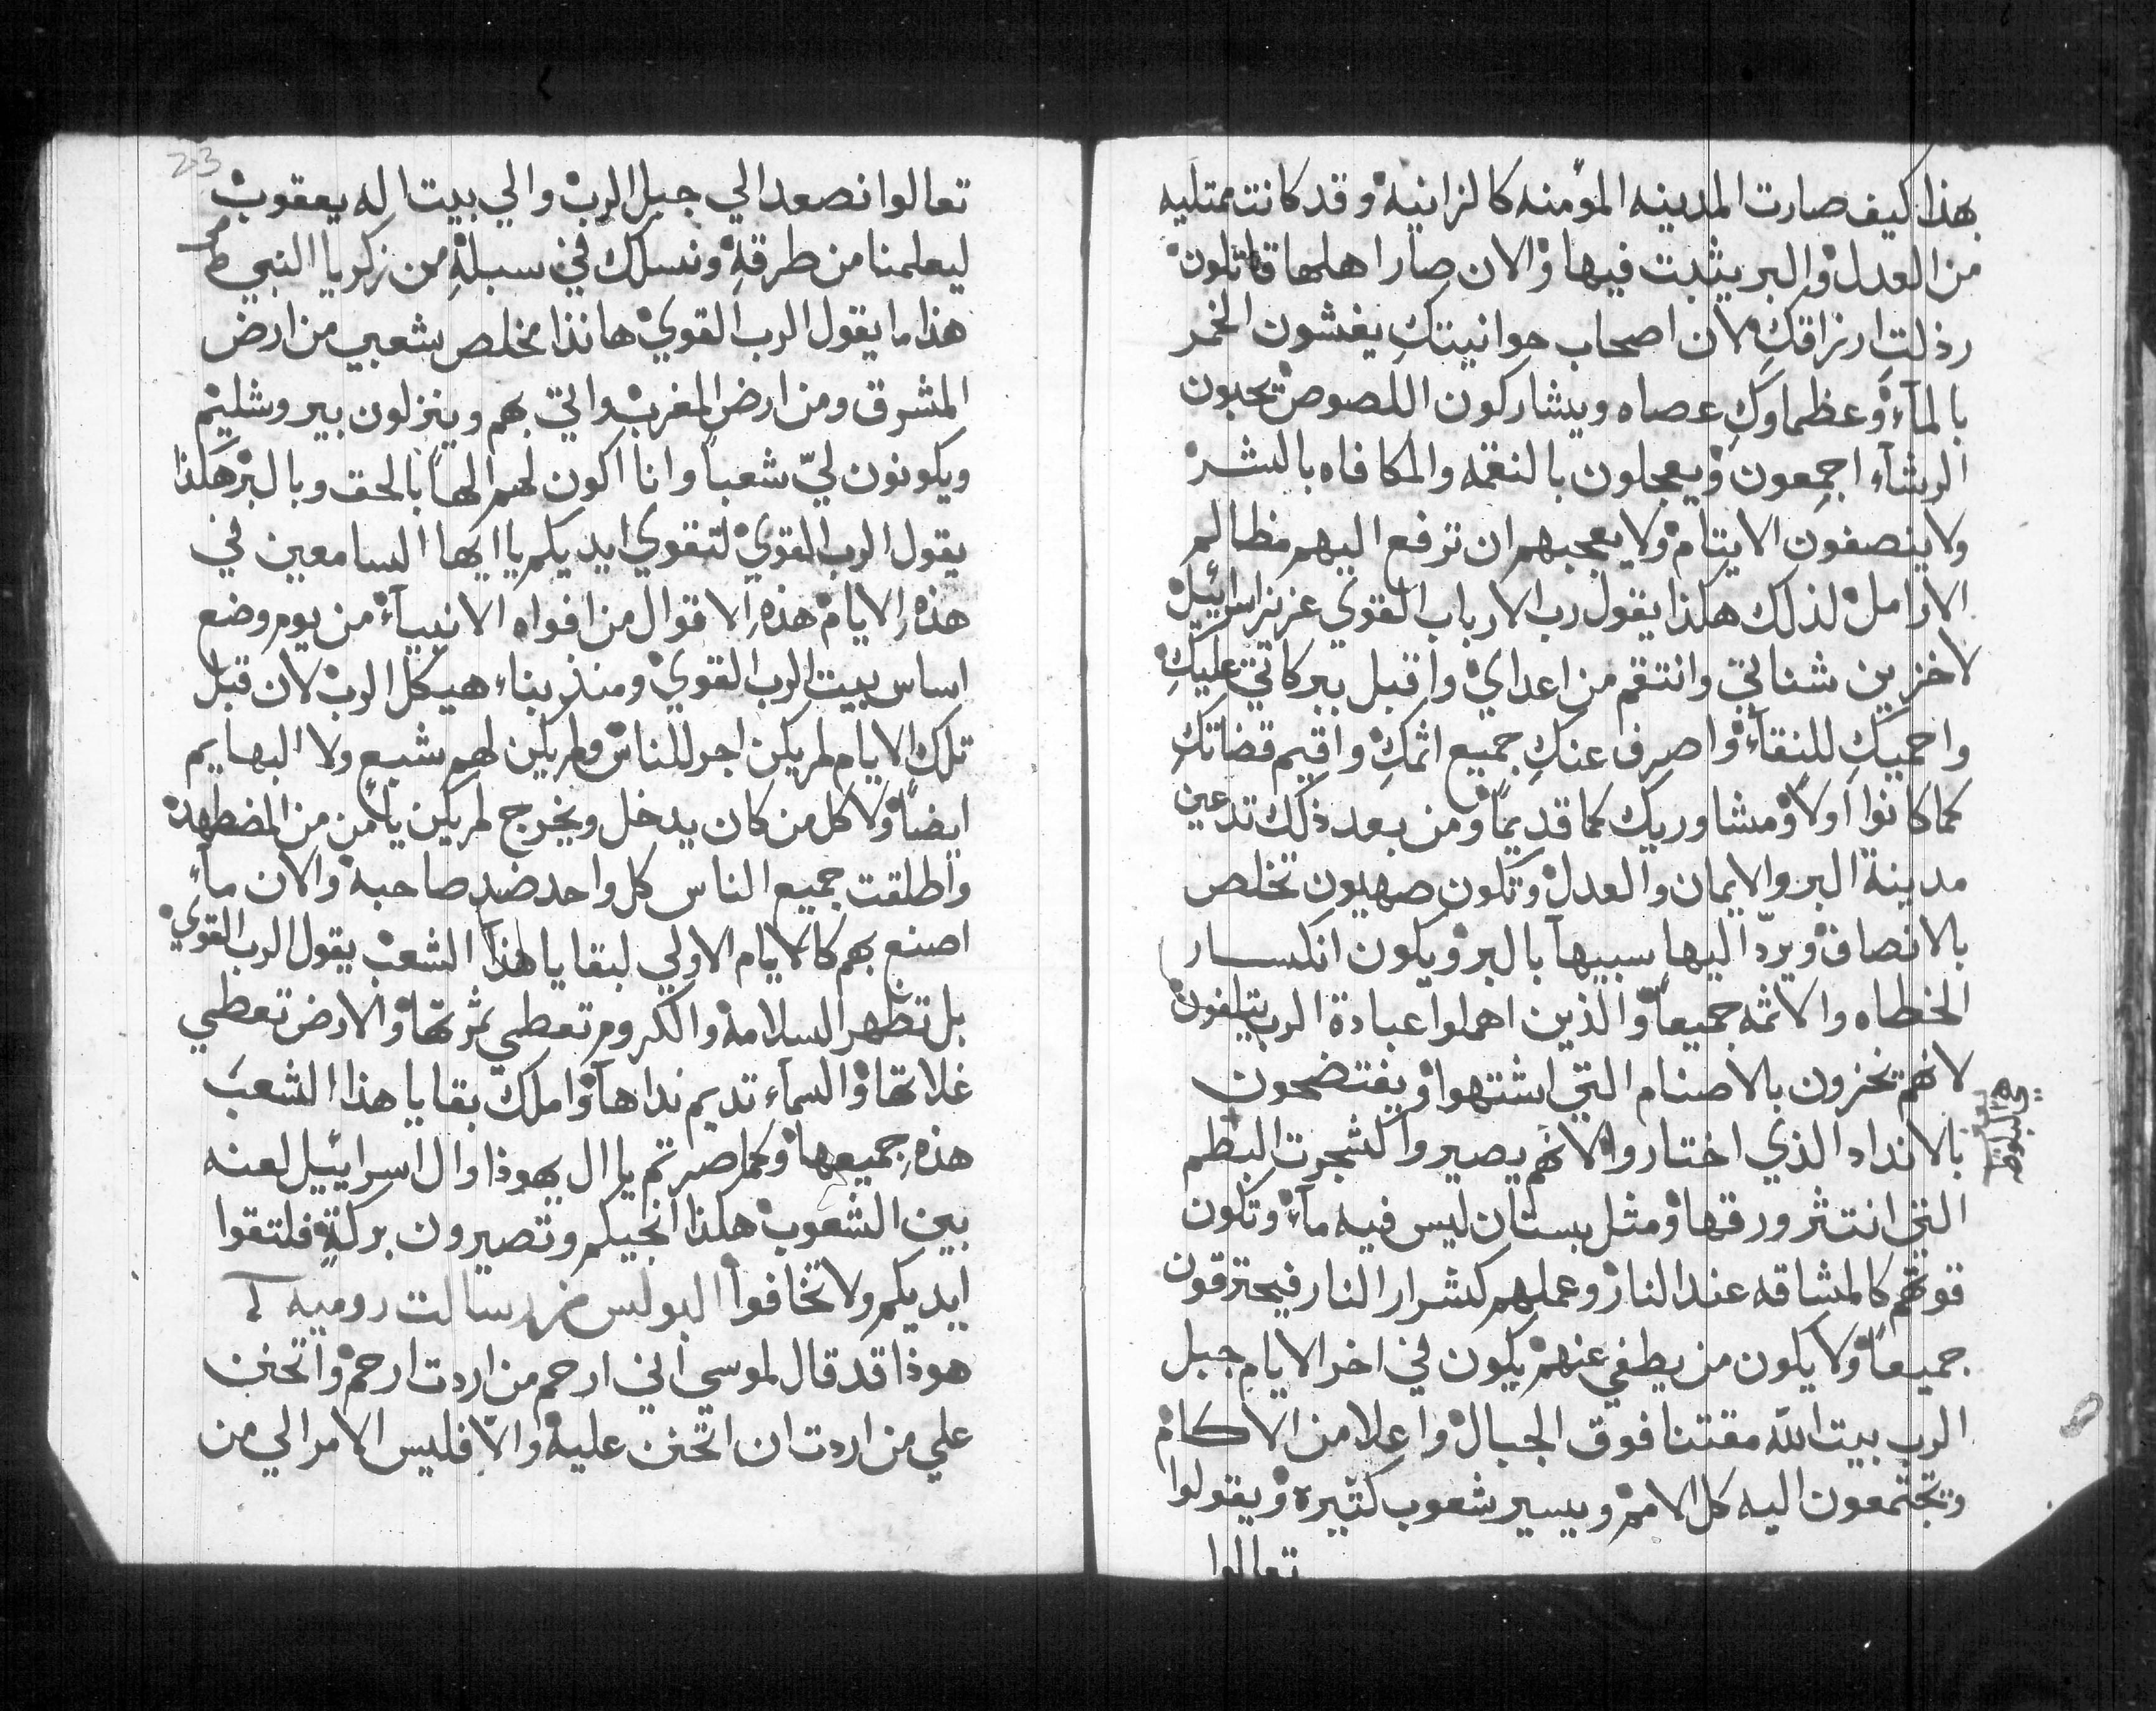 بهذا كيف صارت المدينه المؤمنه كالزانيه وقد كانت ممتليه
من العدل والبر يثبت فيها والان صار اهلها قاتلون
رذلتِ ارزاقكِ لان اصحاب حوانيتكِ يغشون الخمر
بالمآء وعظماوكِ عصاه ويشاركون اللصوص يحبون
الرشآء اجمعون ويعجلون بالنقمه والمكافاه بالشر
ولا ينصفون الايتام ولا يعجبهم ان ترفع اليهم مظالم
الارامل لذلك هكذا يقول رب الارباب القوي عزيز اسرائيل
لاخزين شناتي وانتقم من اعداي واقبل ببركاتي عليكِ
واحميكِ للنقآء واصرف عنكِ جميع اثمكِ واقيم قضاتك
كما كانوا اولاً ومشاوريك كما قديماً ومن بعد ذلك تدعين
مدينة البر والايمان والعدل وتكون صهيون تخلص
بالانصاف ويردّ اليها سبيها بالبر ويكون انكسار
الخطاه والاثمه جميعاً والذين اهملوا عبادة الرب يتلفون
لانهم يخزون بالاصنام التي اشتهوا ويفتضحون
بالانداد الذي اختاروا لانهم يصيروا كشجرت البطم
التي انتثر ورقها ومثل بستان ليس فيه مآء وتكون
قوتهم كالمشاقه عند النار وعملهم كشرار النار فيحترقون
جميعاً ولا يكون من يطفي عنهم يكون في اخر الايام جبل
الرب بيت الله مقتنا فوق الجبال واعلا من الاكام
وتجتمعون اليه كل الامم ويسير شعوب كثيره ويقولوا
تعالوا
23
تعالوا نصعد الي جبل الرب والي بيت اله يعقوب
ليعلمنا من طرقهِ ونسلك في سبلهِ من زكريا النبي
هذا ما يقول الرب القوي هانذا مخلص شعبي من ارض
المشرق ومن ارض المغرب واتي بهم وينزلون بيروشليم
ويكونون ليّ شعباً وانا اكون لهم الهاً بالحق وبالبر هكذا
يقول الرب القوي لتقوي ايديكم يا ايها السامعين في
هذهِ الايام هذهِ الاقوال من افواه الانبيآء من يوم وضع
اساس بيت الرب القوي ومنذ بناء هيكل الرب لان قبل
تلك الايام لم يكن اجر للناس ولم يكن لهم شبع ولا البهايم
ايضاً ولا كل من كان يدخل ويخرج لم يكن يامن من المضطهده
واطلقت جميع الناس كل واحد ضد صاحبه والان مآء
اصنع بهم كالايام الاولي لبقايا هذا الشعب يقول الرب القوي
بل تظهر السلامه والكروم تعطي ثمرتها والارض تعطي
غلاتها والسمآء تديم نداها واملك بقايا هذا الشعب
هذهِ جميعها وكما صرتم يا ال يهوذا وال اسراييل لعنه
بين الشعوب هكذا انجيكم وتصيرون بركة فلتقوا
ايديكم ولا تخافوا البولس من رسالت روميه
هوذا قد قال لموسي اني ارحم من اردت ارحم واتحنن
علي من اردت ان اتحنن عليه والّا فليس الامر الي من